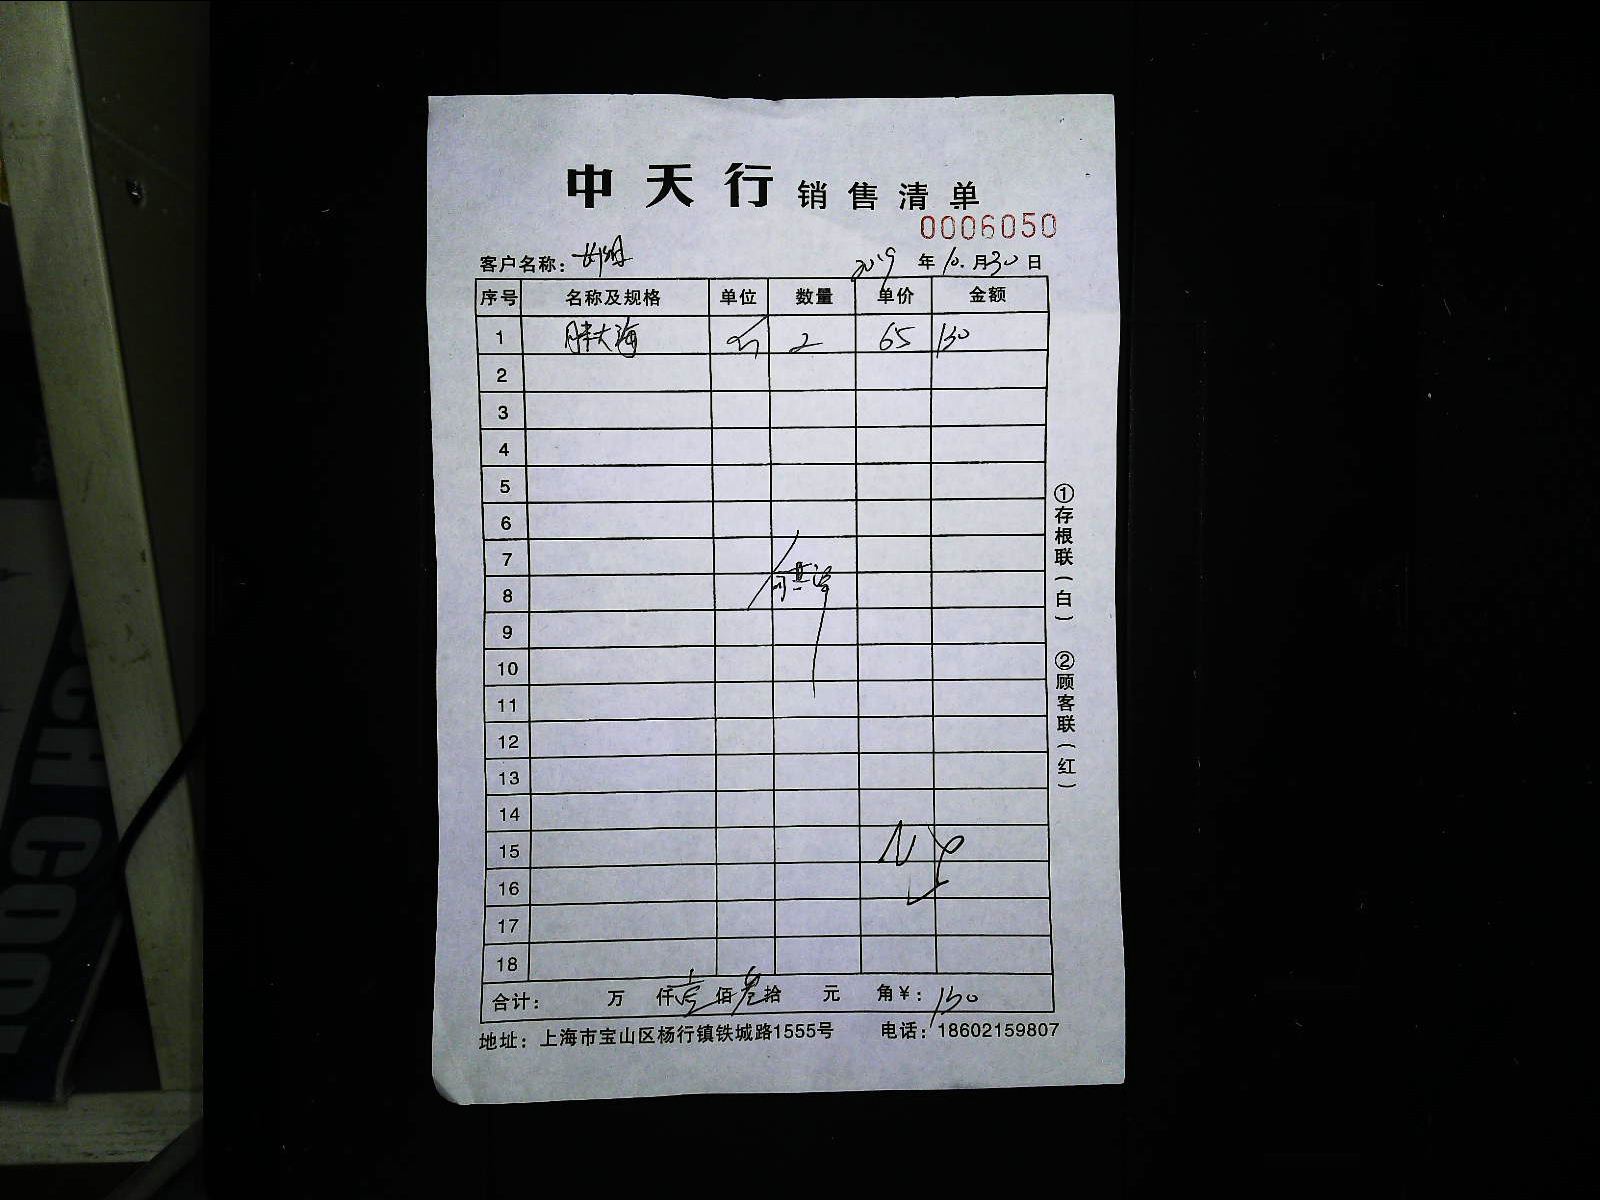 中天行 销售清单
0006050
客户名称：
2019 年 10. 月 30 日
序号 名称及规格 单位 数量 单价 金额
1 胖大海 斤 2 65 130
2
3
4
5
6
7
8
9
10
11
12
13
14
15
16
17
18
合计： 万 仟 壹 佰 叁 拾 元 角 ¥：130
地址：上海市宝山区杨行镇铁城路1555号 电话：18602159807
①存根联（白） ②顾客联（红）